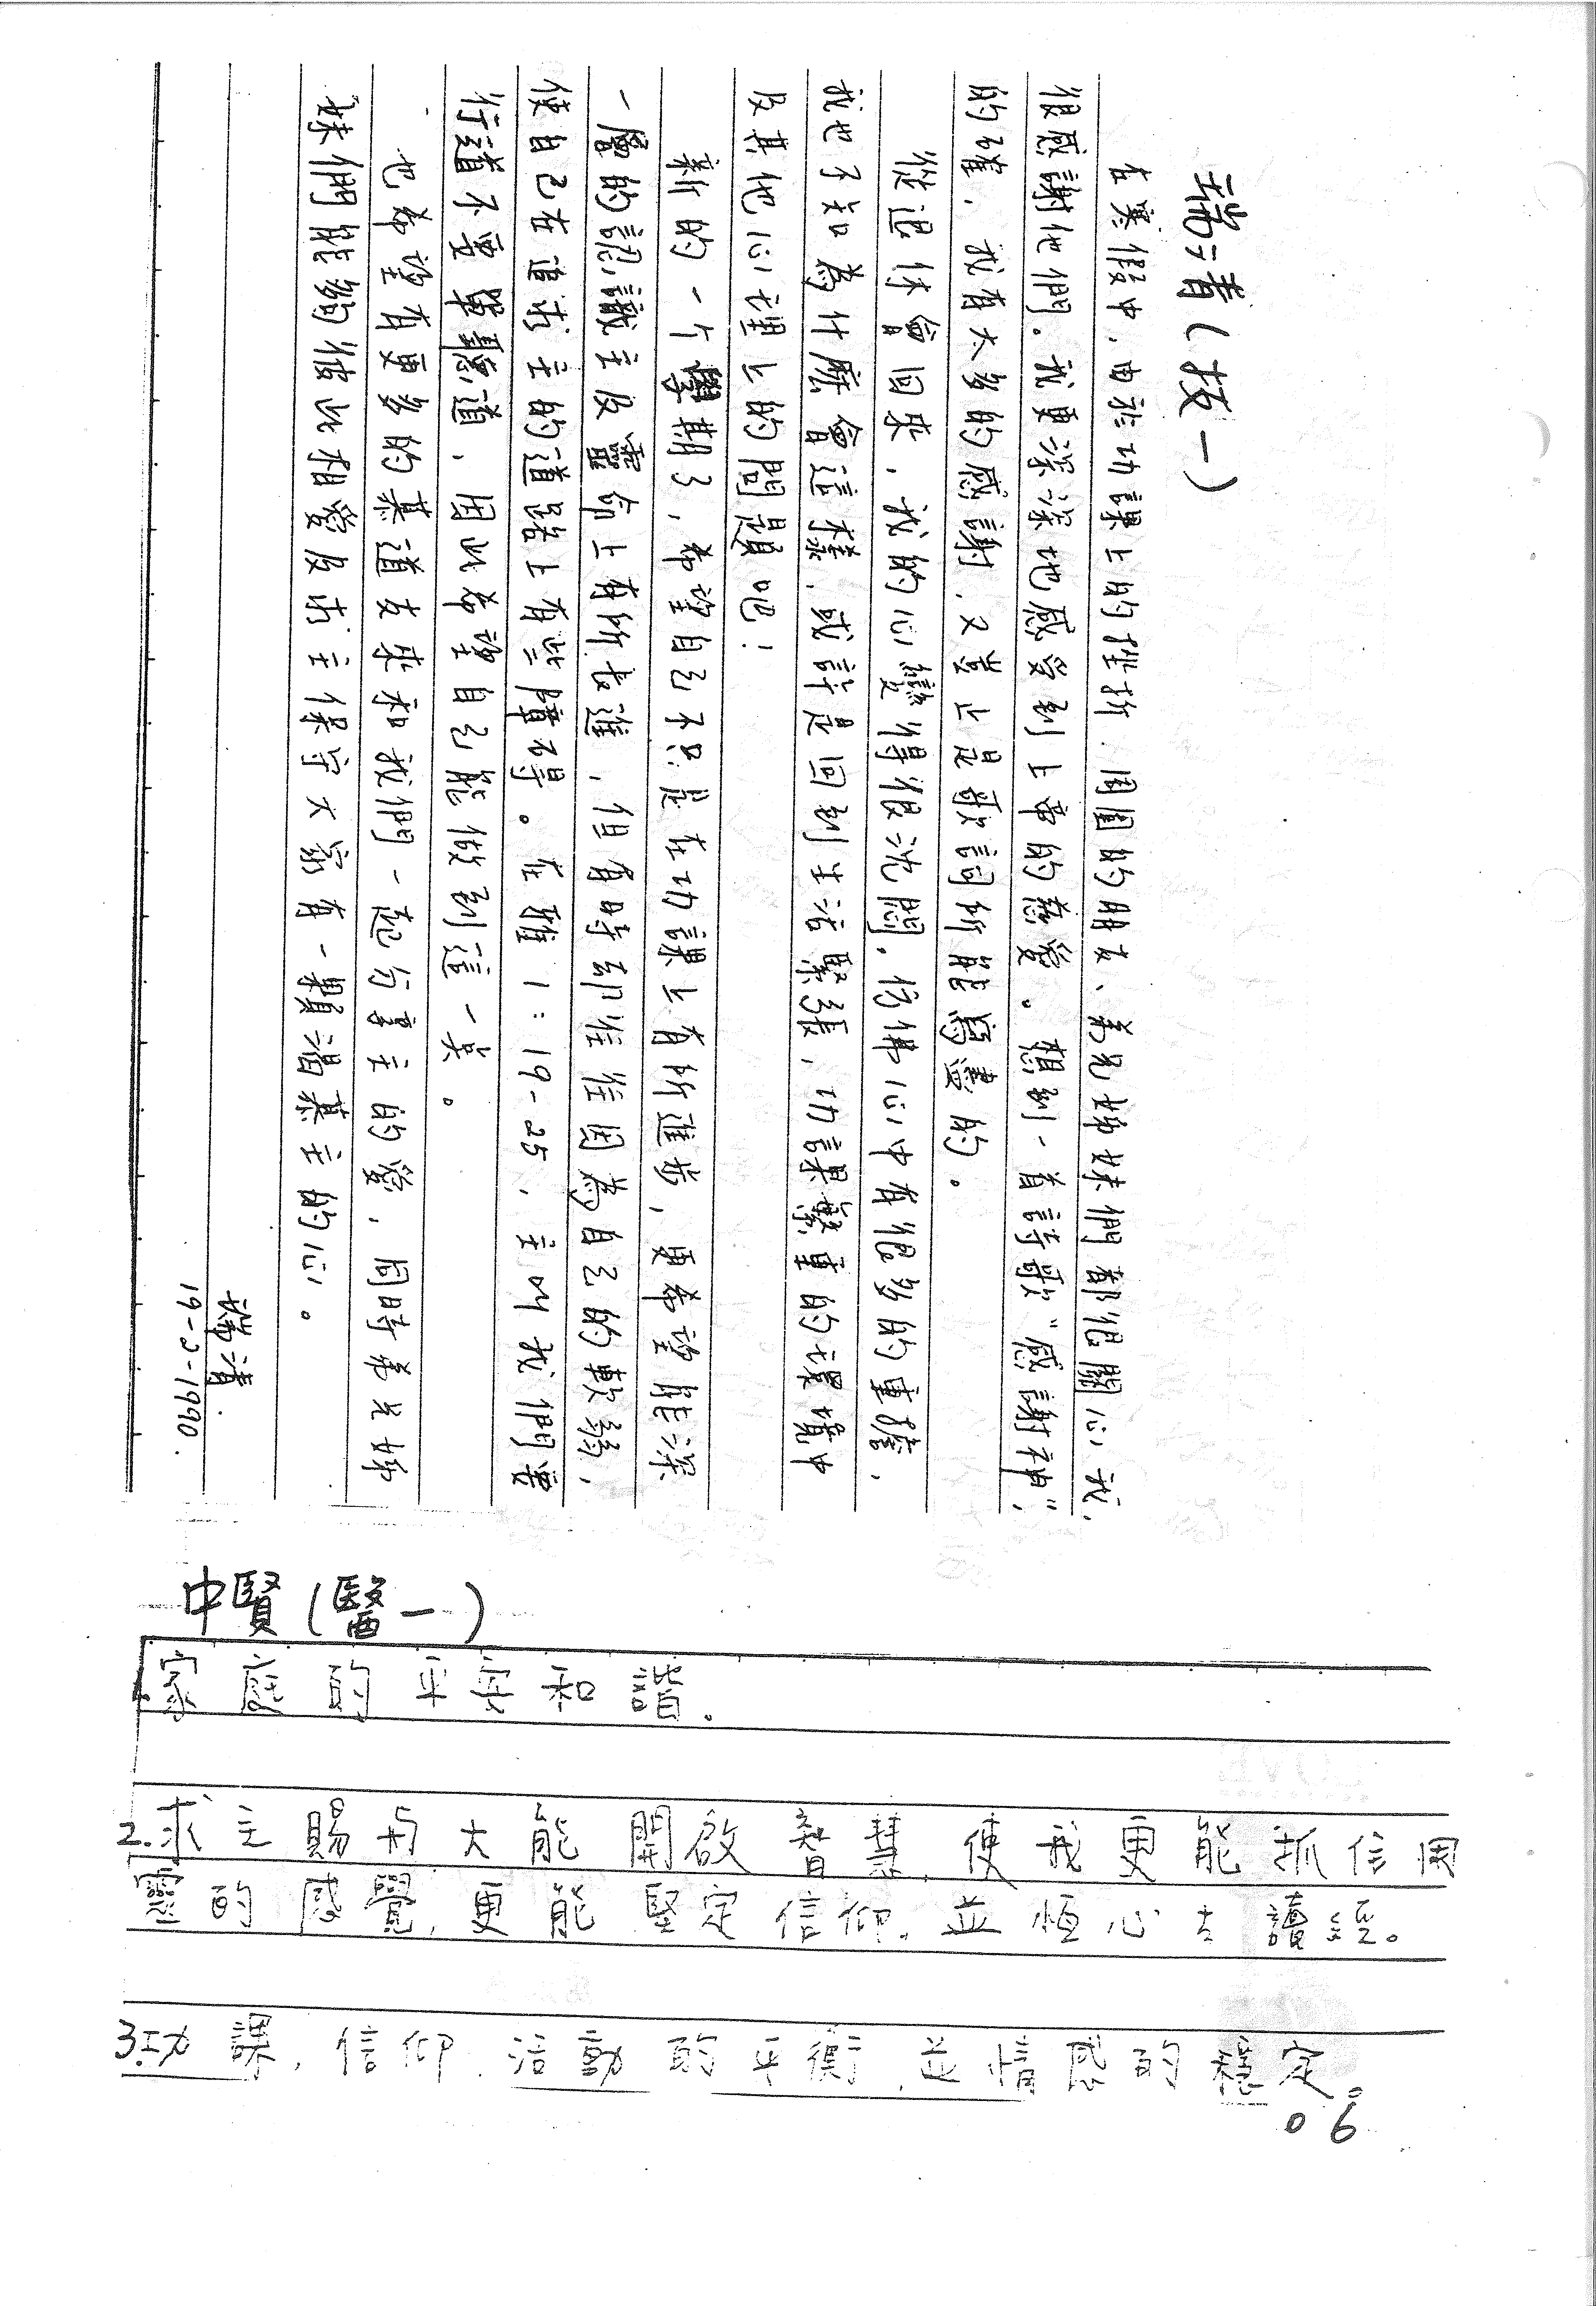 瑞清(技一)
在寒假中，由於功課上的挫折，周圍的朋友、弟兄姊妹們都很關心我，
很感謝他們。我更深深地感受到上帝的慈愛。想到一首詩歌"感謝神"，
的確，我有太多的感謝，又豈止是歌詞所能寫盡的。
從退修會回來，我的心變得很沈悶，彷彿心中有很多的重擔，
我也不知為什麼會這樣，或許是回到生活緊張，功課繁重的環境中
及其他心理上的問題吧！
新的一个學期了，希望自己不只是在功課上有所進步，更希望能深
一層的認識主及靈命上有所長進，但有時却往往因為自己的軟弱，
使自己在追求主的道路上有些障碍。在雅1：19-25，主叫我們要
行道不要單聽道，因此希望自己能做到這一点。
也希望有更多的慕道友來和我們一起分享主的愛，同時弟兄姊
妹們能夠彼此相愛及求主保守大家有一顆渴慕主的心。
瑞清
19-2-1990.
中賢(醫一)
家庭的平安和諧.
2.求主賜與大能開啟智慧,使我更能抓住周
靈的感覺,更能堅定信仰,並恆心去讀經。
3.功課,信仰,活動的平衡,並情感的穩定。
06